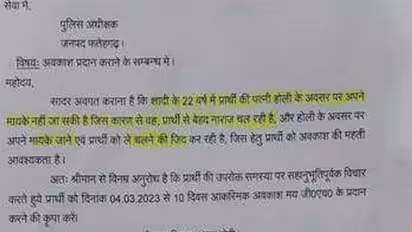 सेवा में,
पुलिस अधीक्षक
जनपद फतेहगढ़।
विषयः अवकाश प्रदान कराने के सम्बन्ध में।
महोदय,
सादर अवगत कराना है कि शादी के 22 वर्ष में प्रार्थी की पत्नी होली के अवसर पर अपने
मायके नहीं जा सकी है जिस कारण से वह, प्रार्थी से बेहद नाराज चल रही है, और होली के अवसर पर
अपने मायके जाने एवं प्रार्थी को ले चलने की जिद कर रही है, जिस हेतु प्रार्थी को अवकाश की महती
आवश्यकता है।
अतः श्रीमान से विनम्र अनुरोध है कि प्रार्थी की उपरोक्त समस्या पर सहानुभूतिपूर्वक विचार
करते हुये प्रार्थी को दिनांक 04.03.2023 से 10 दिवस आकस्मिक अवकाश मय जी०ए०० के प्रदान
करने की कृपा करें।